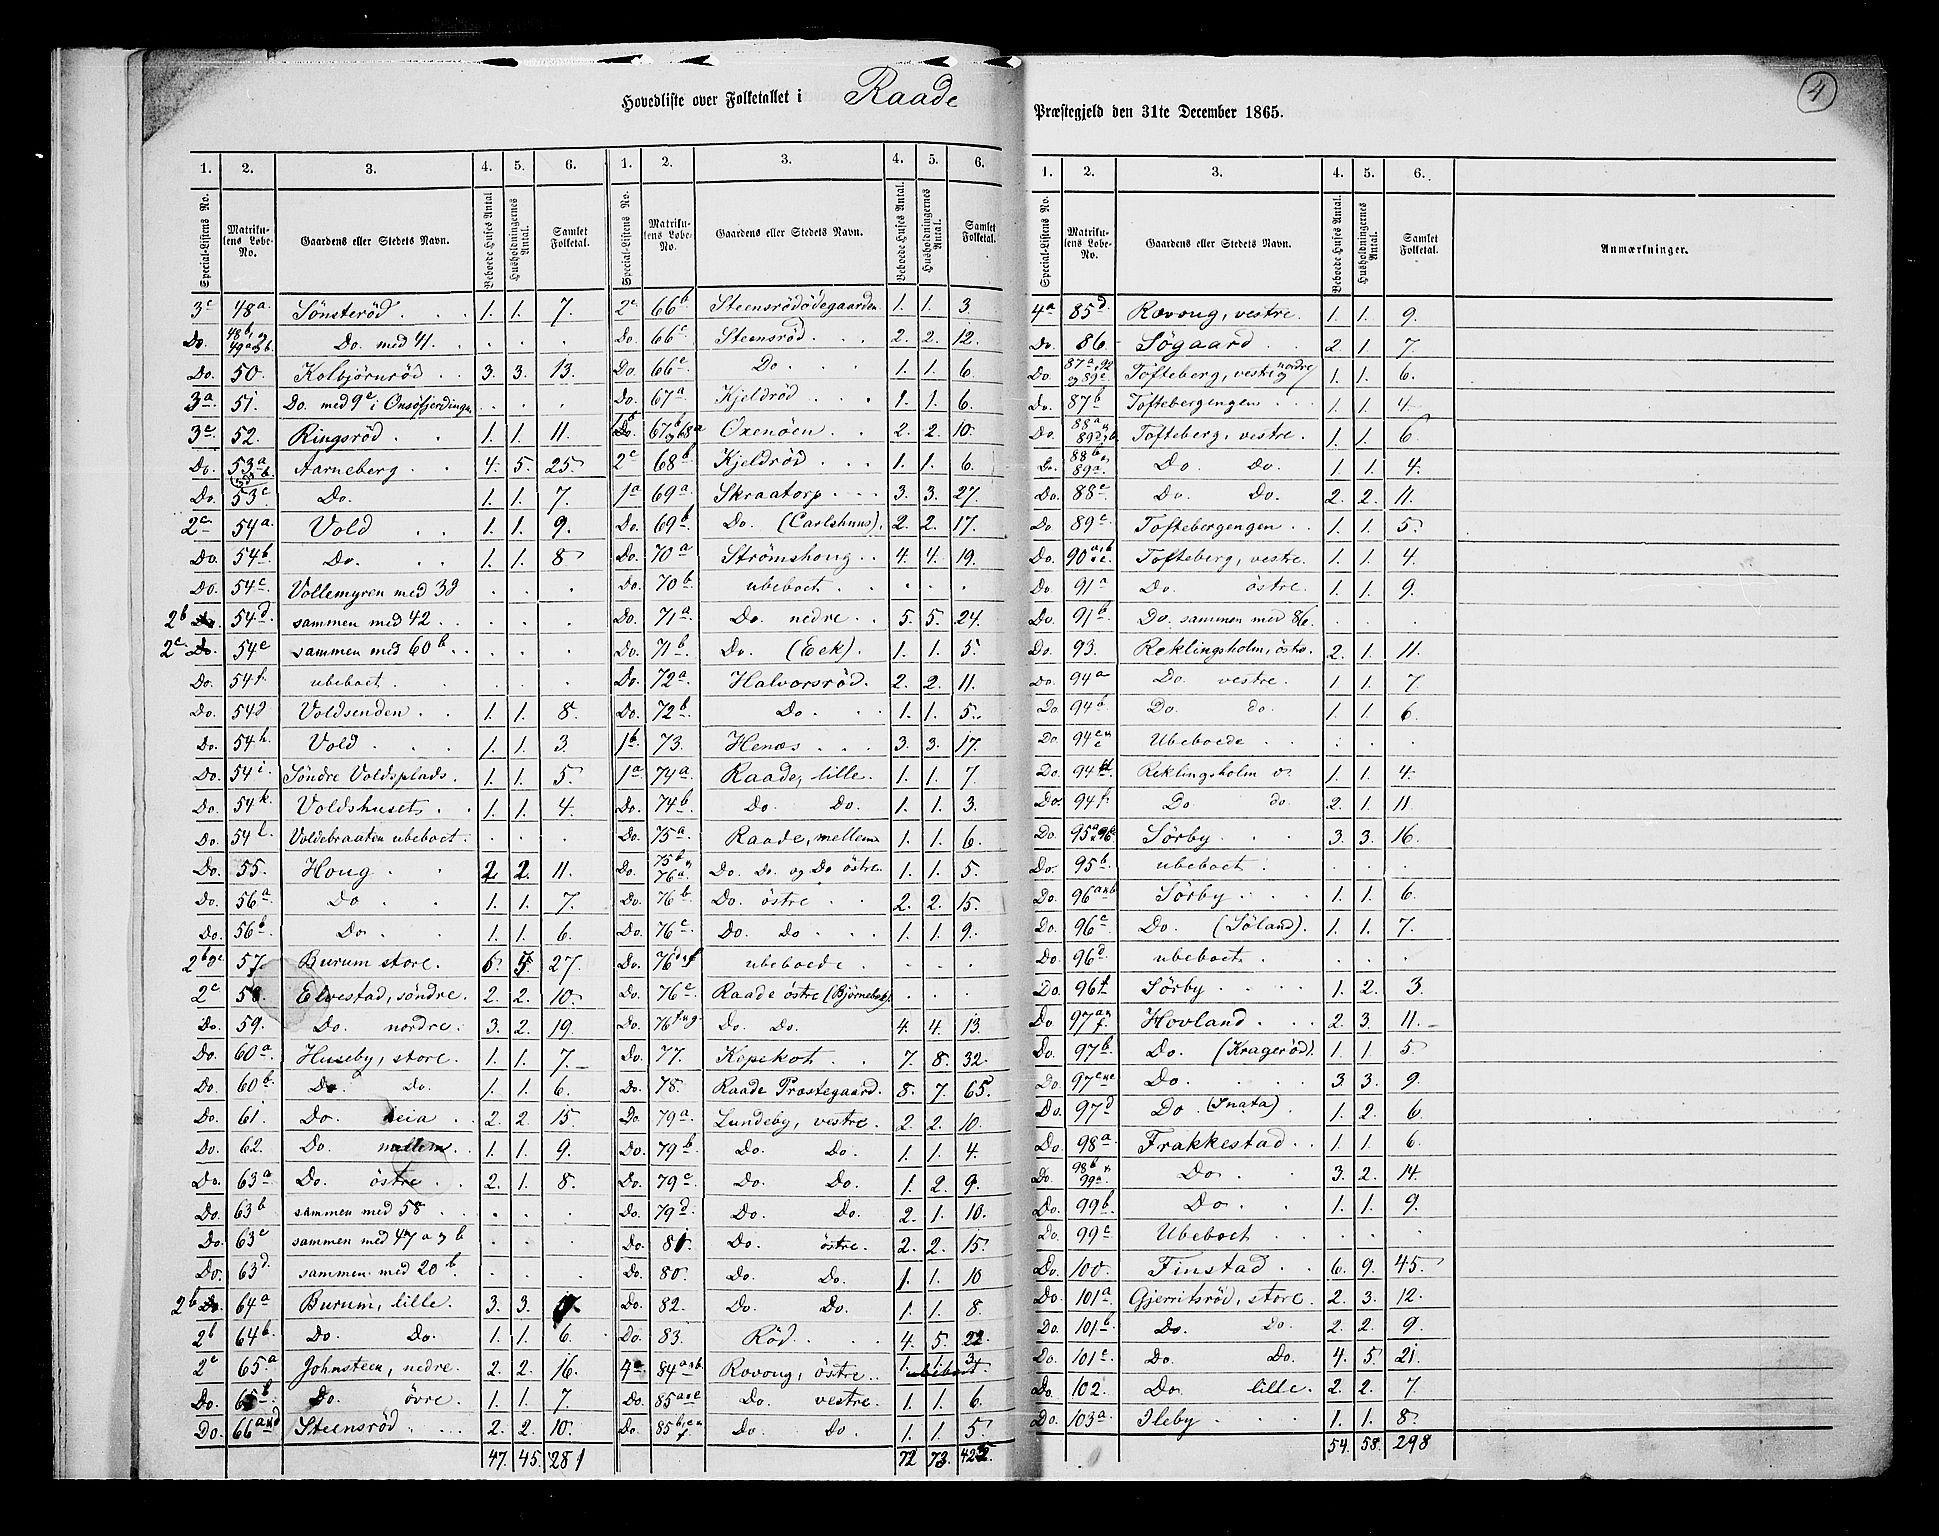 4
Hovedliste over Folketallet i Raade Præstegjeld den 31te December 1865.
1. 2. 3. 4. 5. 6. 1. 2. 3. 4. 5. 6.
Special-Listens No. Matrikulens Løbe-No. Gaardens eller Stedets Navn. Beboede Huses Antal. Husholdningernes Antal. Samlet Folketal. Special-Listens No. Matrikulens Løbe-No. Gaardens eller Stedets Navn. Beboede Huses Antal. Husholdningernes Antal. Samlet Folketal.
3c 48a. Sönsteröd . . . 1. 1. 7.
Do. 48b, 49a og b Do. med 41. . . . .
Do. 50. Kolbjörnröd . . 3. 3. 13.
3a. 51. Do. med 9c i Onsöfjerdingen . . .
3c. 52. Ringsröd . . 1. 1. 11.
Do. 53a Aarneberg . . 4. 5. 25.
Do. 53c Do. 1. 1. 7.
2c. 54a. Vold . . 1. 1. 9.
Do. 54b. Do. . . 1. 1. 8
Do. 54c Vollemyren med 38 . . .
2b 54d. sammen med 42 . . . . .
2c 54e sammen med 60b . . . . .
Do. 54f. ubeboet . . . .
Do. 54g Voldsenden . . 1. 1. 8.
Do. 54h. Vold . . . 1. 1. 3.
Do. 54i. Söndre Voldsplads. 1. 1. 5.
Do. 54k. Voldshuset . . 1. 1. 4.
Do. 54l. Voldebraaten ubeboet. . . .
Do. 55. Houg . . 2. 2. 11.
Do. 56a Do . . 1. 1. 7.
Do. 56b. Do . . 1. 1. 6.
57. Burum store. 27.
2c 58. Elvestad, söndre. 2. 2. 10.
Do. 59. Do. nordre. 3. 2. 19.
Do. 60a. Huseby, store. 1. 1. 7.
Do. 60b. Do. Do. 1. 1. 6.
Do. 61 Do . . 2. 2. 15.
Do. 62. Do. mellem. . 1. 1. 9.
Do. 63a Do. östre . . 2. 1. 8.
Do. 63b sammen med 58 . . . . .
Do. 63c sammen med 47 a og b . . .
Do. 63d. sammen med 20b. . . .
2b 64a Burum, lille. 3. 3.
2b 64b. Do. Do. 1. 1. 6.
2c 65.a Johnsteen, nedre. 2. 2. 16.
Do. 65b Do. övre. 1. 1. 7.
Do. 66a Steensröd . . . 2. 2. 10.
47. 45. 281
2c 66b Steensrödödegaarden 1. 1. 3.
Do. 66c Steensröd . . 2. 2. 12.
Do. 66e Do . . . 1. 1. 6.
Do. 67a. Kjeldröd . . . 1. 1. 6.
1b 67b og 68a Oxenöen . . 2. 2. 10.
2c 68b Kjeldröd . . . 1. 1. 6.
1a 69a. Skraatorp . . . 3. 3. 27.
Do. 69b. Do. (Carlshuus). 2. 2. 17.
Do. 70a Strömshoug . . 4. 4. 19.
Do. 70b ubeboet . . . .
Do. 71a Do. nedre . . 5. 5. 24.
Do. 71b. Do. (Eek). 1. 1. 5.
Do. 72a Halvorsröd. 2. 2. 11.
Do. 72b. Do . . . 1. 1. 5.
1b. 73. Henæs . . . 3. 3. 17.
1a 74a. Raade, lille. 1. 1. 7.
Do. 74b Do. Do. 1. 1. 3.
Do. 75a Raade, mellem 1. 1. 6.
Do. 75b og 76a. Do. Do. og Do östre. 1. 1. 5.
Do. 76b Do. östre . . 2. 2. 15.
Do. 76c Do. Do. . . . 1. 1. 9.
Do. 76d ubeboede . . . .
Do. 76e. Raade östre (Björnebek) . . .
Do. 76f og g. Do. Do. 4. 4. 13.
Do. 77. Kopekot . . 7. 8. 32.
Do. 78. Raade Præstegaard. 8. 7. 65.
Do 79a Lundeby, vestre. 2. 2. 10.
Do. 79b Do. Do. 1. 1. 4.
Do. 79c Do. Do. 1. 2. 9.
Do. 79d Do. Do. 2. 1. 10.
Do. 81 Do. östre. 2. 2. 15.
Do. 80. Do. Do. 1. 1. 10
Do. 82. Do. Do. 1. 1. 8.
Do. 83. Röd . . . 4. 5. 22.
4a 84a Rovoug, östre . . 1. 1. 3. ubeboet.
Do. 85a Do. vestre. 1. 1. 6.
Do. 85b Do. Do. 1. 1. 5.
72 73.
1. 2. 3. 4. 5. 6.
Special-Listens No. Matrikulens Løbe-No. Gaardens eller Stedets Navn. Beboede Huses Antal. Husholdningernes Antal. Samlet Folketal. Anmærkninger.
4a 85d Rovoug, vestre. 1. 1. 9.
Do. 86. Søgaard . . 2. 1. 7.
Do. 87a, 92 og 89e. Tofteberg, vestre og nordre 1. 1. 6.
Do. 87b Toftebergengen . . . 1. 1. 4.
Do. 88a og 89d, b Tofteberg, vestre. 1. 1. 6.
Do. 88b og 89a. Do. Do. 1. 1. 4.
Do. 88c Do. Do. 2. 2. 11.
Do. 89c Toftebergengen . . 1. 1. 5.
Do. 90a,b Tofteberg, vestre. 1. 1. 4.
Do. 91a Do. östre. 1. 1. 9.
Do. 91b Do. sammen med 86. . . .
Do. 93. Reklingsholm, östre. 2. 1. 11.
Do. 94a Do. vestre. 1. 1. 7.
Do 94b. Do. do. 1. 1. 6.
Do. 94c Ubeboede . . . .
Do 94d Reklingsholm v. 1. 1. 4.
Do. 94f. Do. do. 2. 1. 11.
Do. 95a Sörby . . . 3. 3. 16.
Do. 95b. ubeboet . . . .
Do. 96a og b Sörby . . . 1. 1. 6.
Do. 96c Do. (Söland). 1. 1. 7.
Do. 96d ubeboet . . . .
Do. 96f. Sörby . . . . 1. 2. 3.
Do 97a og f. Hovland . . . 2. 3. 11.
Do. 97b. Do. (Krageröd). 1. 1. 5
Do 97c Do . . . . 3. 3. 9.
Do. 97d Do. (Snata). 1. 2. 6.
Do. 98a Frakkestad . . 1. 1. 6.
Do. 98b og 99a. Do . . 3. 2. 14.
Do. 99b Do . . 1. 1. 9.
Do. 99c Ubeboet . . . .
Do. 100. Finstad . . 6. 9. 45.
Do 101a. Gjerritsröd, store. 2. 3. 12.
Do. 101b. Do. Do. 2. 2. 9.
Do. 101c Do. Do. 4. 5. 21.
Do 102. Do. lille. 2. 2. 7.
Do. 103a. Ileby . . . 1. 1. 8.
54. 58. 298